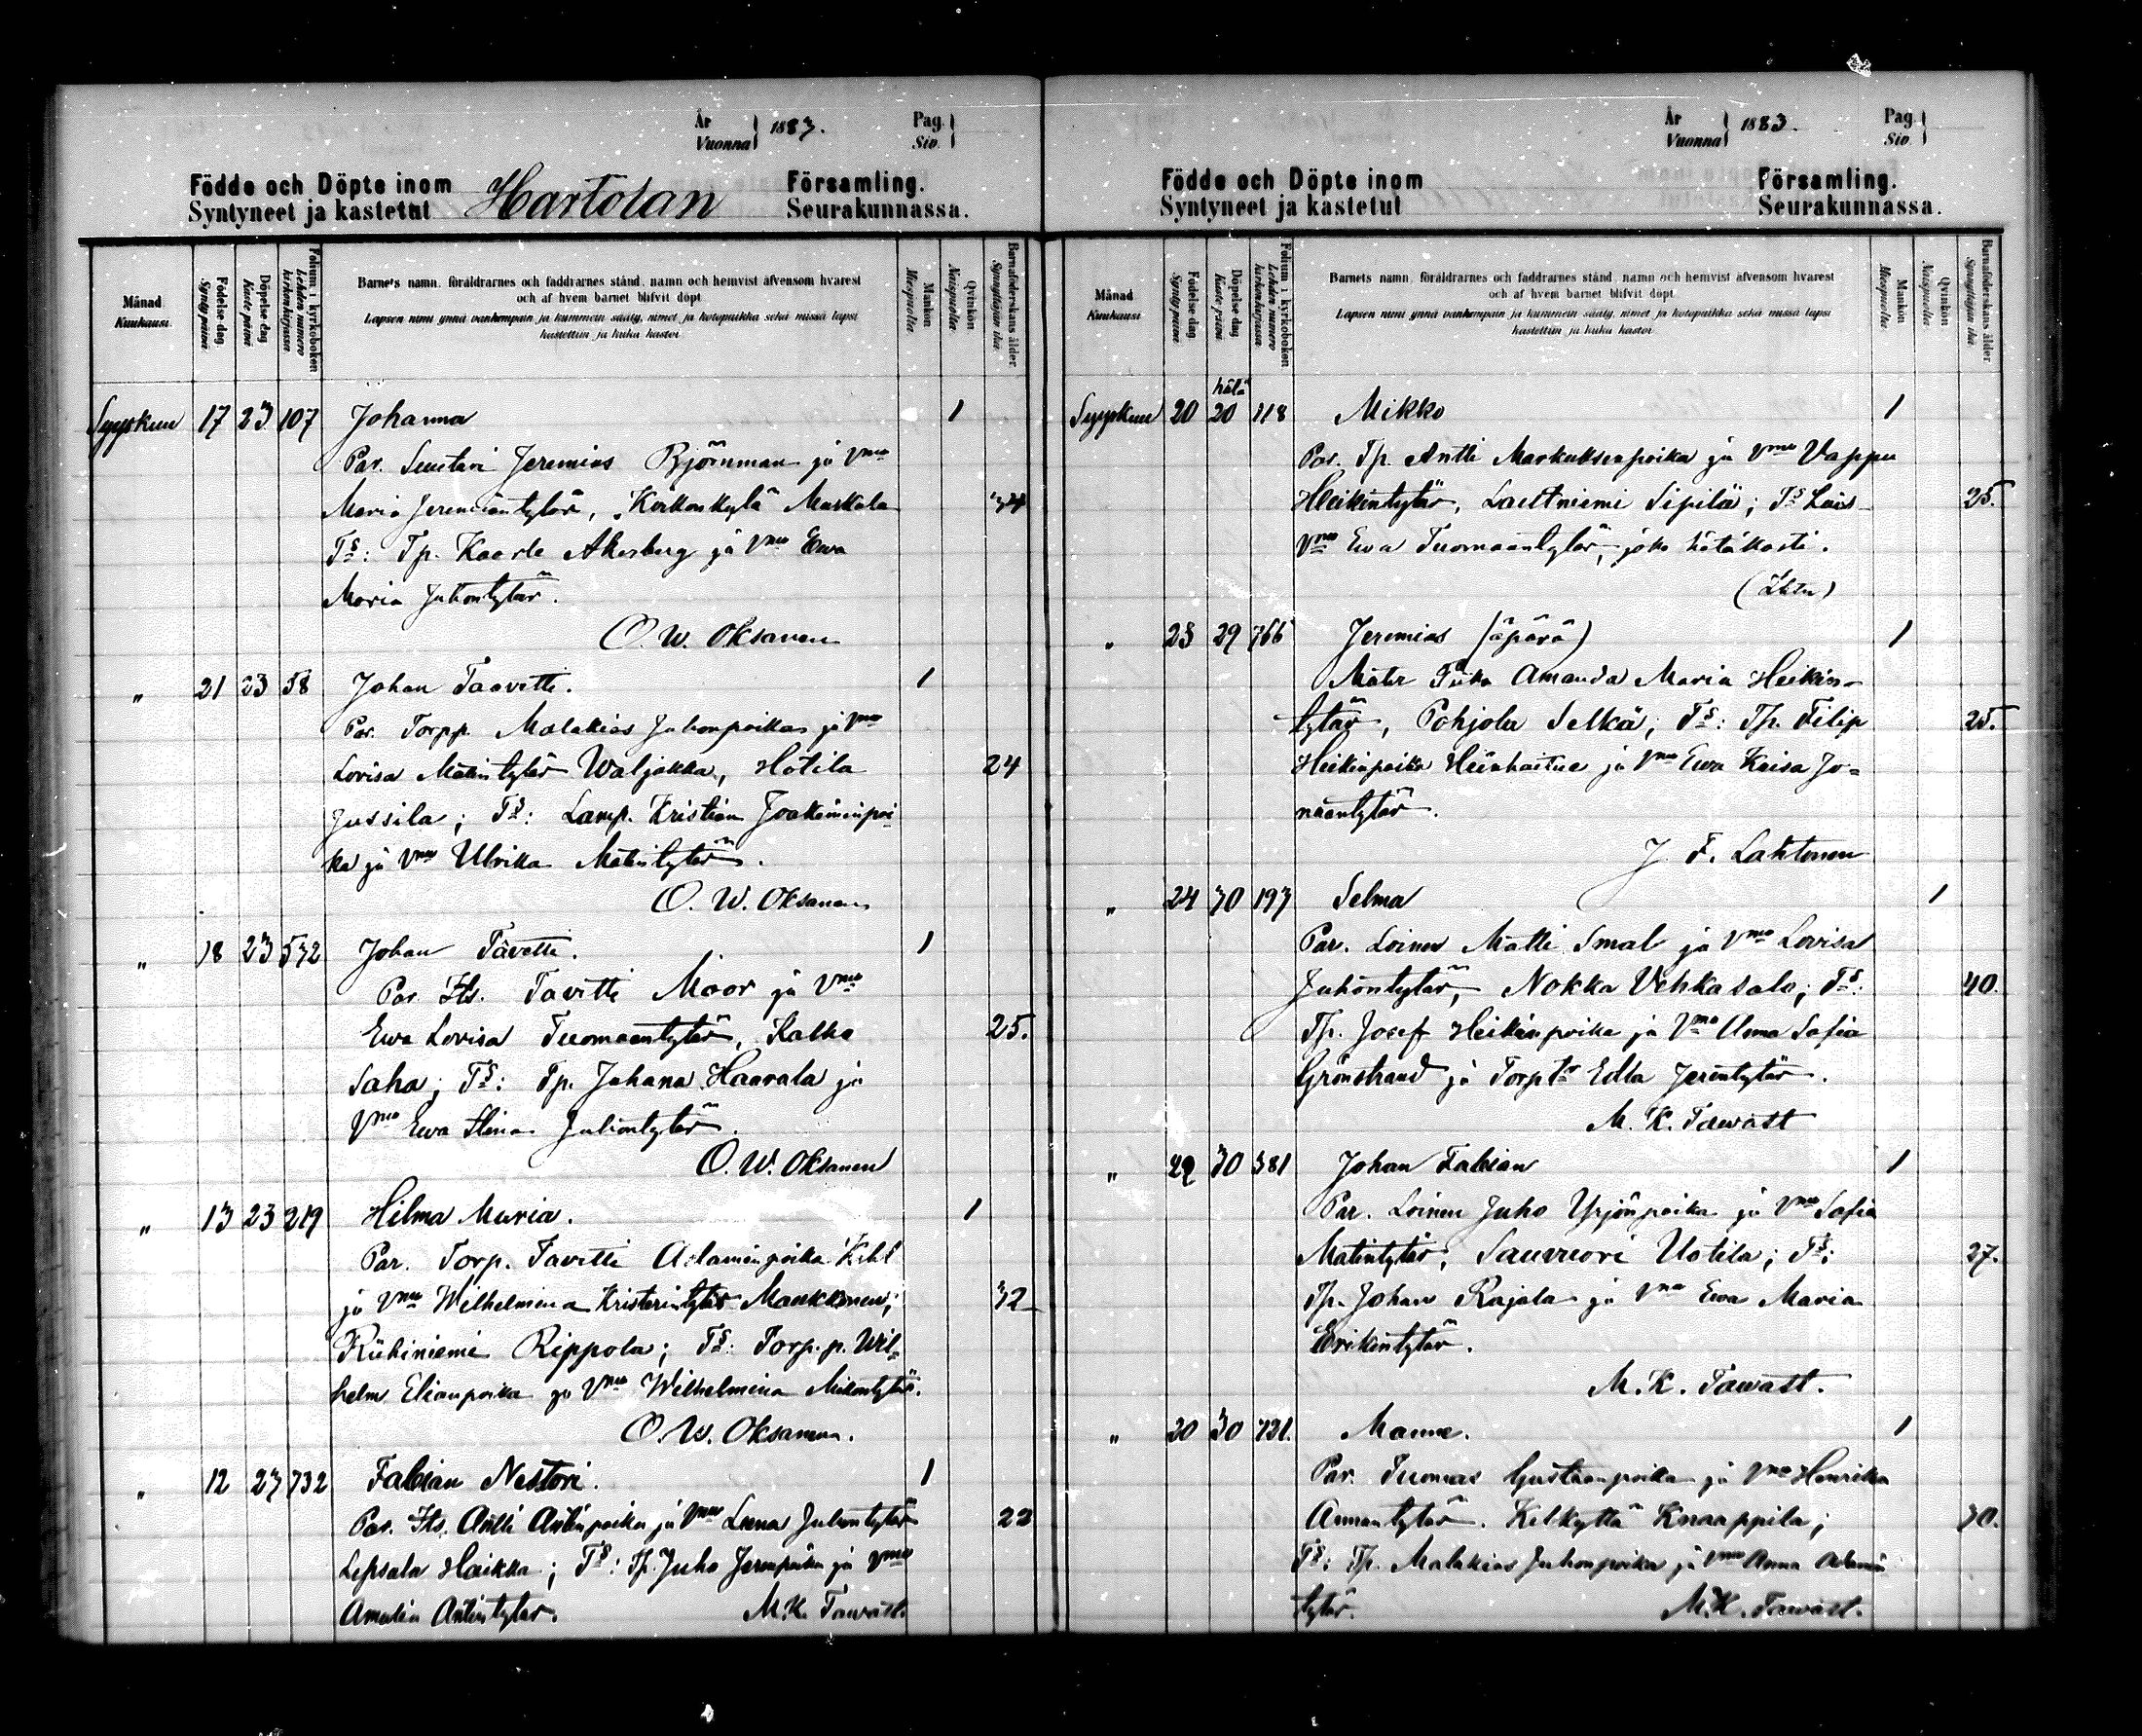 År
Vuonna } 1883.
Pag.
Siv. }
Födde och Döpte inom
Syntyneet ja kastetut
Hartolan
Församling.
Seurakunnassa.
Månad
Kuukausi.
Födelse dag
Syntypäivä
Döpelse dag
Kaste päivä
Folium i kyrkoboken
Lehden numero kirkonkirjassa
Barnets namn, föräldrarnes och faddrarnes stånd, namn och hemvist äfvensom hvarest
och af hvem barnet blifvit döpt
Lapsen nimi ynnä vanhempain ja kummein sääty, nimet ja kotopaikka sekä missä lapsi
kastettiin ja kuka kastoi
Mankön
Miespuolta
Qvinkön
Naispuolta
Barnaföderskans ålder
Synnyttäjän ikä
Syyskuu 17 23 107 Johanna 1
Par. Suutari Jeremias Björnman ja Vmo
Maria Jeremiantytär, Kirkonkylä Markala 34
Ts: Tp. Kaarle Akerberg ja Vmo Ewa
Maria Juhontytär.
O. W. Oksanen
" 21 23 58 Johan Taavetti. 1
Par. Torpp. Malakias Juhonpoika ja Vmo
Lovisa Matintytär Waljakka, Hotila 24
Jussila; Ts: Lamp. Kristian Joakiminpoi-
ka ja Vmo Ulrika Matintytär.
O. W. Oksanen
" 18 23 532 Johan Tavetti. 1
Par. Its. Tavitti Moor ja Vmo
Ewa Lovisa Tuomaantytär, Kalho 25.
Saha; Ts: Tp. Juhana Haavala ja
Vmo Ewa Stina Juhontytär.
O. W. Oksanen
" 13 23 219 Hilma Maria. 1
Par. Torp. Tavitti Adaminpoika Kihl
ja Vmo Wilhelmina Kristerintytär Maukkonen; 32
Ruhiniemi Rippola; Ts: Torp. p. Wil-
helm Elianpoika ja Vmo Wilhelmina Mikontytär.
O. W. Oksanen.
" 12 23 732 Fabian Nestori. 1
Par. Its. Antti Antinpoika ja Vmo Leena Juhontytär 22
Lepsala Haikka; Ts: Tp. Juho Jerenpoika ja Vmo
Amalia Antintytär. M. K. Tawast.
År
Vuonna } 1883.
Pag.
Siv. }
Födde och Döpte inom
Syntyneet ja kastetut
Församling.
Seurakunnassa.
Månad
Kuukausi.
Födelse dag
Syntypäivä
Döpelse dag
Kaste päivä
Folium i kyrkoboken
Lehden numero kirkonkirjassa
Barnets namn, föräldrarnes och faddrarnes stånd, namn och hemvist äfvensom hvarest
och af hvem barnet blifvit döpt
Lapsen nimi ynnä vanhempain ja kummein sääty, nimet ja kotopaikka sekä missä lapsi
kastettiin ja kuka kastoi
Mankön
Miespuolta
Qvinkön
Naispuolta
Barnaföderskans ålder
Synnyttäjän ikä
hätä
Syyskuu 20 20 118 Mikko 1
Par. Tp. Antti Markuksenpoika ja Vmo Vappu
Heikintytär, Laettniemi Sipilä; Ts Lois-
Vmo Ewa Tuomaantytär, joka hätäkasti.
" 23 29 766 Jeremias (äpärä) 1
Mater Piika Amanda Maria Heikin-
tytär, Pohjola Selkä; Ts: Tp. Filip 25.
Heikinpoika Heinhaitue ja Vmo Ewa Kaisa Jo-
naantytär.
J. F. Lahtonen
" 24 30 193 Selma 1
Par. Loinen Matti Smal ja Vmo Lovisa
Juhontytär, Nokka Vehkasalo; Ts: 40.
Tp. Josef Heikinpoika ja Vmo Anna Sofia
Grönstrand ja Torptr Edla Jerentytär.
M. K. Tawast
" 29 30 381 Johan Fabian 1
Par. Loinen Juho Yrjönpoika ja Vmo Sofia
Matintytär, Sauvuori Uotila; Ts: 27.
Tp. Johan Rajala ja Vmo Ewa Maria
Erikintytär.
M. K. Tawast.
" 20 30 721. Manne. 1
Par. Tuomas Gustaanpoika ja Vmo Henrika
Annantytär. Kelkyttä Knaappila; 30.
Ts: Tp. Malakias Juhonpoika ja Vmo Anna Adamin
tytär. M. K. Tawast.